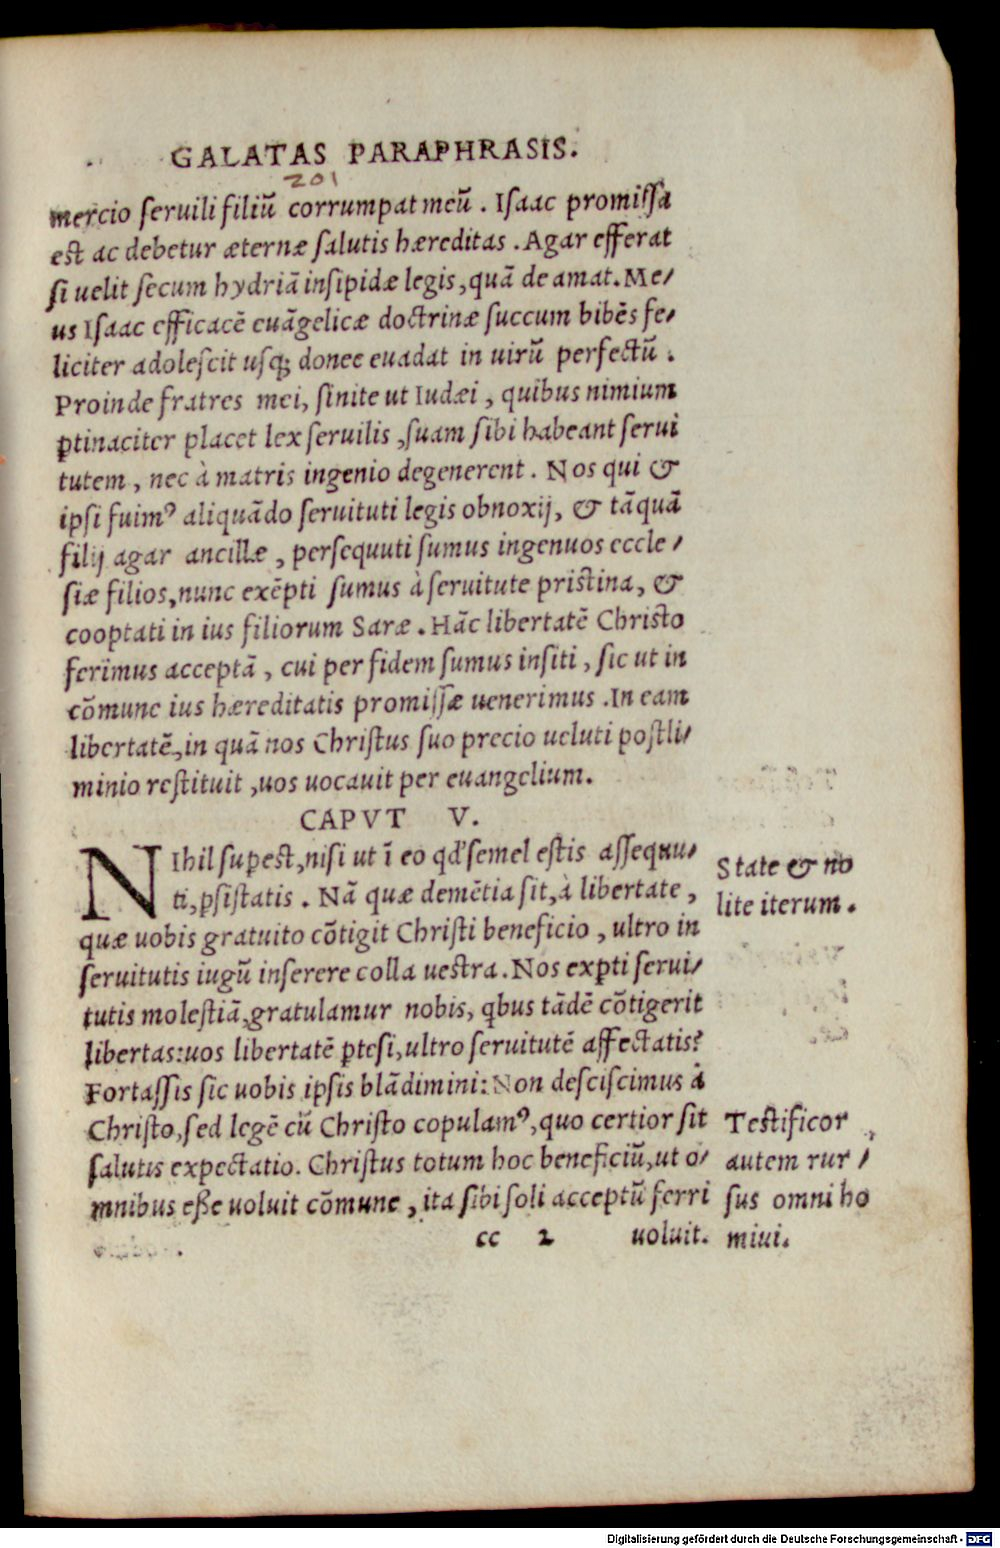 GALATAS PARAPHRASIS.
201
mercio ſeruili filiū corrumpat meū. Iſaac promiſſa
est ac debetur æternæ ſalutis hæreditas. Agar efferat
ſi uelit ſecum hydriā inſipidæ legis, quā deamat. Me/
us Iſaac efficacē euāgelicæ doctrinæ ſuccum bibēs fe/
liciter adoleſcit uſq; donec euadat in uirū perfectū.
Proinde fratres mei, ſinite ut Iudæi, quibus nimium
ꝑtinaciter placet lex ſeruilis, ſuam ſibi habeant ſerui
tutem, nec à matris ingenio degenerent. Nos qui &
ipſi fuimꝰ aliquādo ſeruituti legis obnoxij, & tāquā
filij agar ancillæ, perſequuti ſumus ingenuos eccle/
ſiæ filios, nunc exēpti ſumus à ſeruitute pristina, &
cooptati in ius filiorum Saræ. Hāc libertatē Christo
ferimus acceptā, cui per fidem ſumus inſiti, ſic ut in
cōmune ius hæreditatis promiſſæ uenerimus. In eam
libertatē, in quā nos Christus ſuo precio ueluti postli/
minio restituit, uos uocauit per euangelium.
CAPVT V.
NIhil suꝑest, niſi ut ī eo qd' ſemel estis aſſequu/
ti, ꝑſiſtatis. Nā quæ demētia ſit, à libertate,
quæ uobis gratuito cōtigit Christi beneficio, ultro in
ſeruitutis iugū inſerere colla uestra. Nos exꝑti ſerui/
tutis molestiā, gratulamur nobis, qbus tādē cōtigerit
libertas: uos libertatē ꝑtesi, ultro ſeruitutē affectatis?
Fortaſſis ſic uobis ipſis blādimini: Non deſciſcimus à
Christo, ſed legē cū Christo copulamꝰ, quo certior ſit
ſalutis expectatio. Christus totum hoc beneficiū, ut o/
mnibus eſſe uoluit cōmune, ita ſibi ſoli acceptū ferri
cc 2 uoluit.
State & no
lite iterum.
Testificor
autem rur/
ſus omni ho
mini.
Digitalisierung gefördert durch die Deutsche Forschungsgemeinschaft - DFG